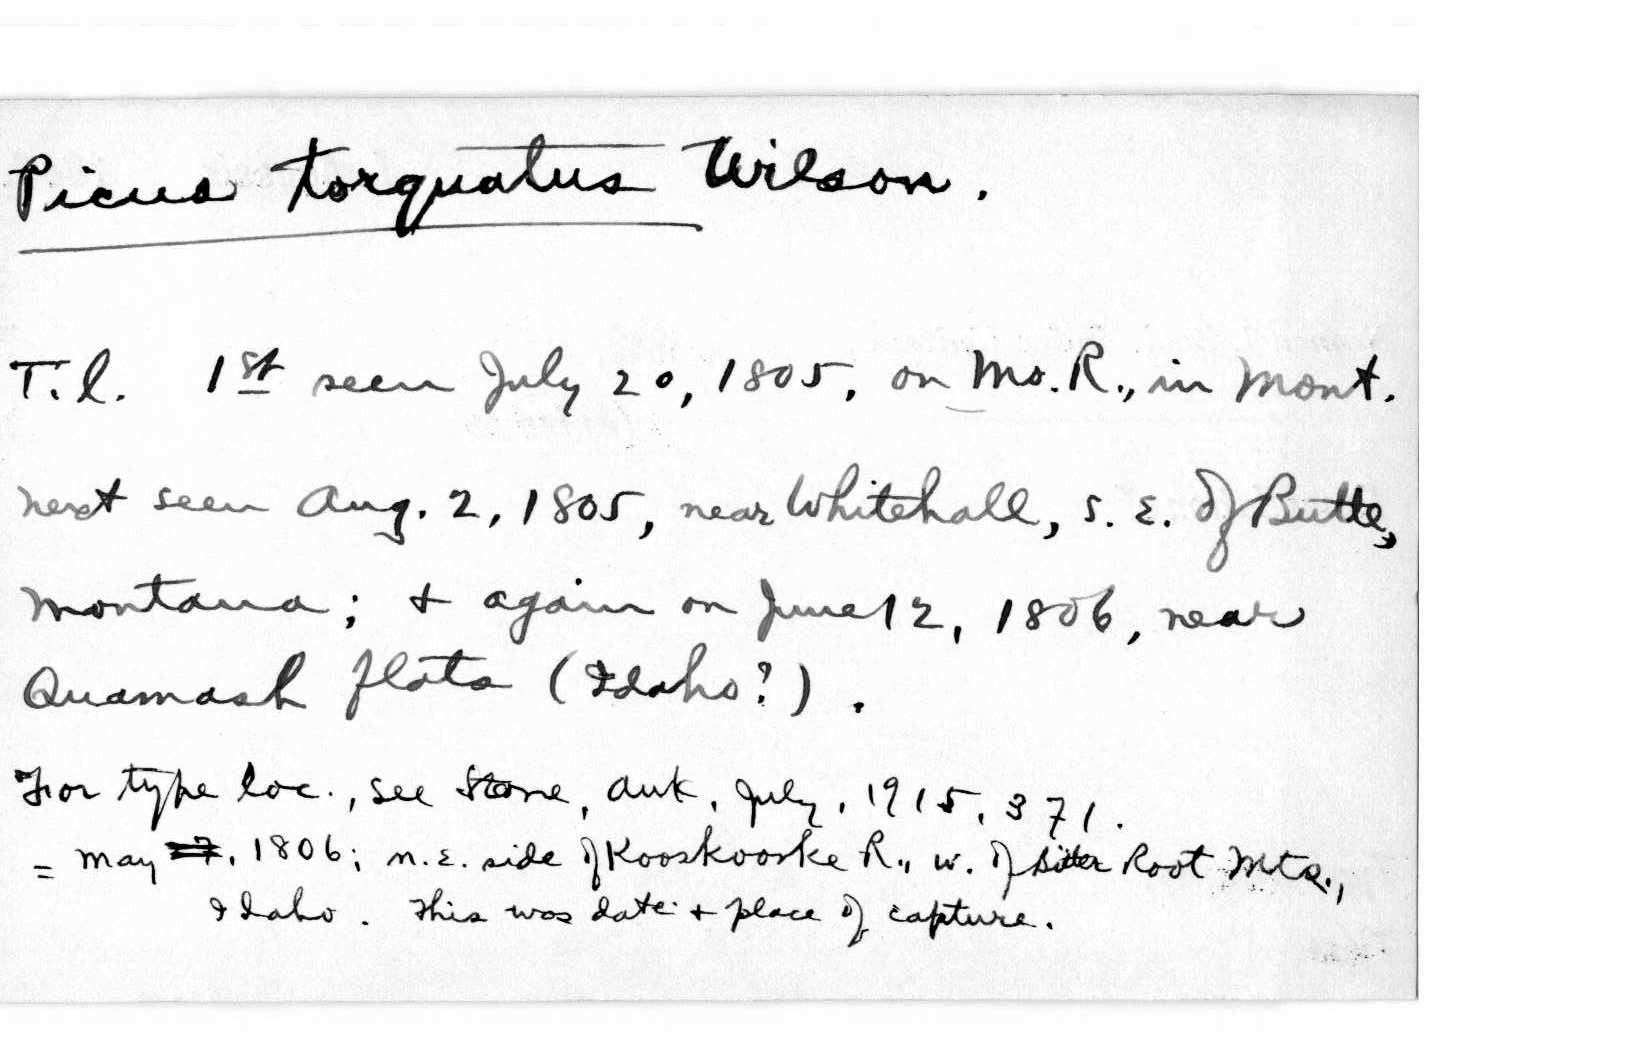 Picus torquatus Wilson.
T.l. 1st seen July 20, 1805, on Mo. R., in Mont.
next seen Aug. 2, 1805, near Whitehall, S. E. of Butte,
Montana; + again on June 12, 1806, near
Quamash flats (Idaho?).
For type loc., see Stone, Auk, July, 1915, 371.
= May 27, 1806; n.E. side of Kooskooske R., w. of Bitter Root Mts.,
Idaho. This was date + place of capture.